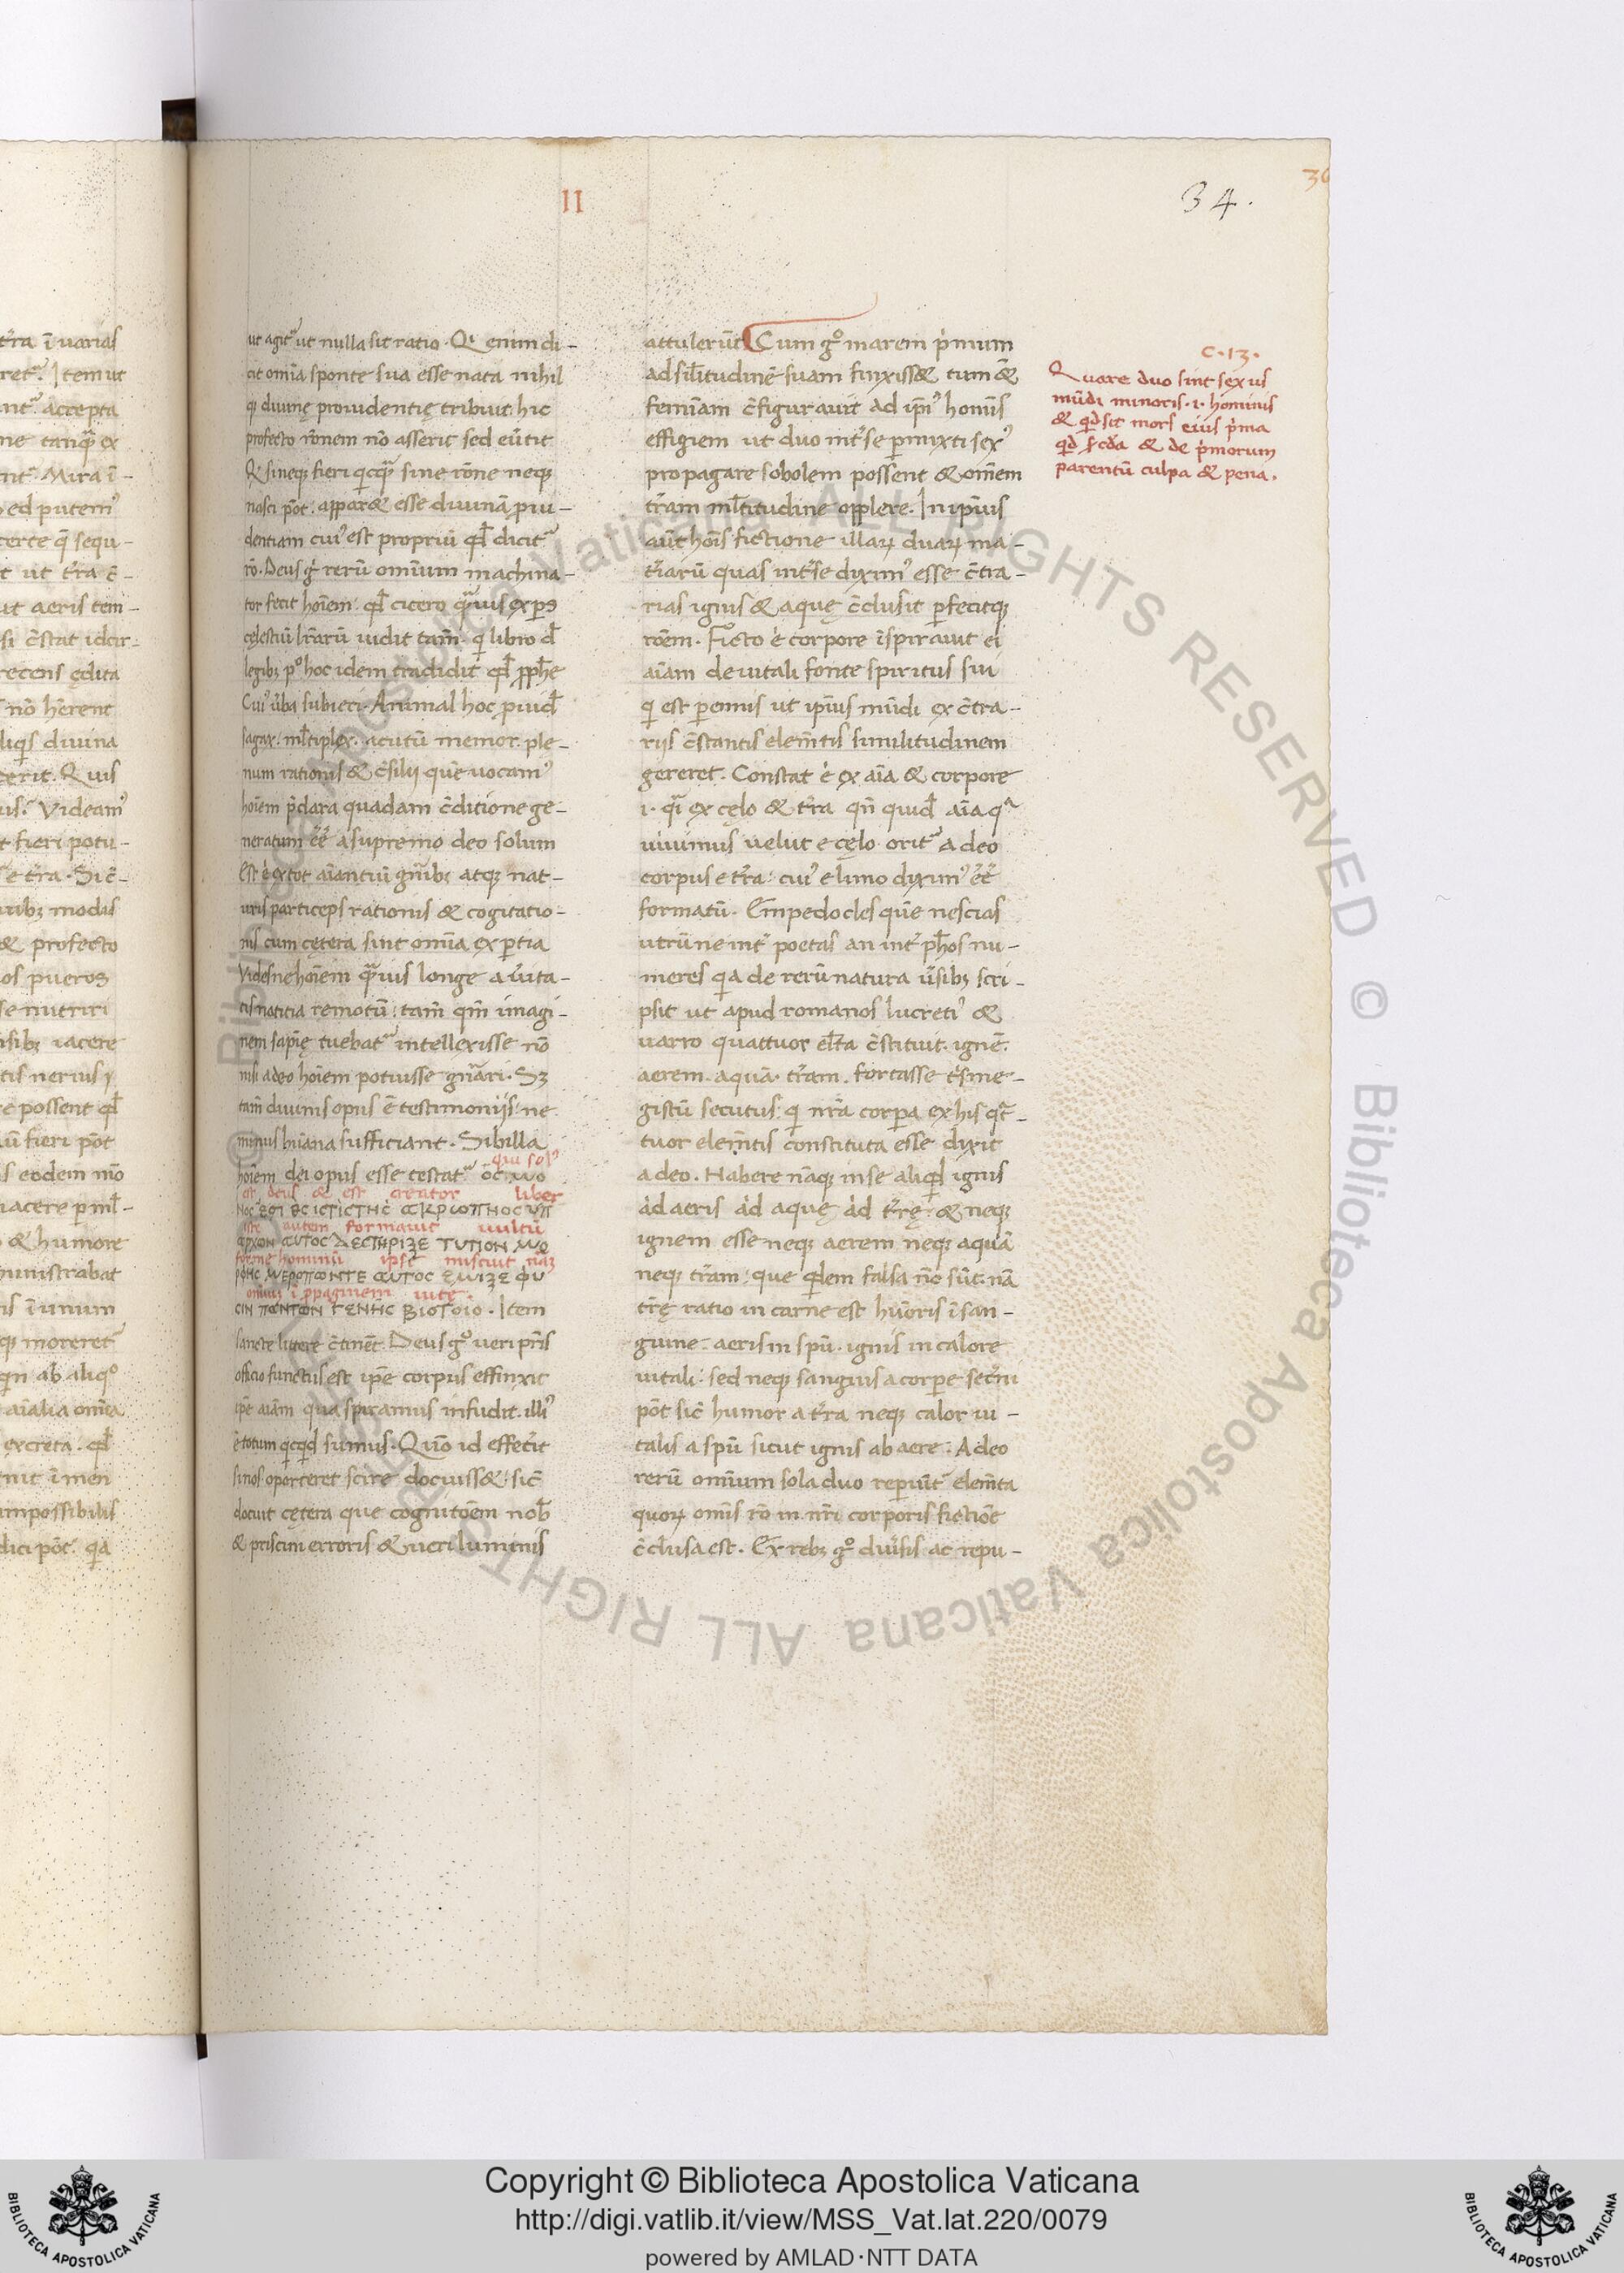 II
34.
ut agit᷑ ut nulla sit ratio. Qi enim di-
cit omīa sponte sua esse nata nihil
q̨ diuinę prouidentię tribuit. hic
profecto rōnem nō asserit sed eūtit
Qꝰ si neq̨ fieri qicq̄ sine rōne neq̨
nasci pōt. apparet esse diuinā ꝓui-
dentiam cuiꝰ est propriū qd̄ dicit᷑
rō. Deus gͥ rerū omīum machina-
tor fecit hoīem. qd̄ cicero q̄uis expꝰ
cęlestiū lr̄arū uidit tam̄. qͥ libro d̄
legibȝ pͦ hoc idem tradidit qd̄ ꝓph̄e
Cuiꝰ ūba subieci. Animal hoc ꝓuid̄
sagax. ml̄tiplex. acutū memor. ple-
num rationis & c̄silij quē uocamꝰ
hoīem p̄clara quadam c̄ditione ge-
neratum ēē a supremo deo solum
Est ē ex tot aīantiū gn̄ibȝ atq̨ nat-
uris particeps rationis & cogitatio-
nis cum cętera sint omīa expertia
Videsne hoīem q̄uis longe a ūita-
tis notitia remotū. tam̄ qm̄ imagi-
nem sapię tuebat᷑ intellexisse nō
nisi a deo hoīem potuisse gn̄ari. Sȝ
tam̄ diuinis opus ē testimonijs. ne
minus hūana sufficiant. Sibilla
qui solꝰ
hoīem dei opus esse testat᷑ ὅc. ωo
est deus & est creator liber
iste autem formauit uultū
ΑΡΧΟΝ ΑΥΤΟC ΔΕCΤΗΡΙΞΕ ΤΥΠΟΝ ΜΟ
forme hominū ipse miscuit
ΡΦΗC ΜΕΡΟΠΩΝΤΕ ΑΥΤΟC ΕΜΙΞΕ ΦΥ
uitę.
CΙΝ ΠΑΝΤΩΝ ΓΕΝΗC ΒΙΟΤΟΙΟ. Item
sancte littere c̄tinēt. Deus gͦ ueri pr̄is
officio functus est ipē corpus effinxit
ipē aīam qua spiramus infudit. illiꝰ
ē totum qicqd sumus. Quō id effecīt
si nos oporteret scire docuisset. sic̄
docuit cętera que cognitoēm nob̄
& pristini erroris & ueri luminis
attulerūt Cum gͦ marem pͥmum
ad sil̄itudinē suam finxisset tum &
femīam c̄figurauit ad ip̄iꝰ homīs
effigiem ut duo int᷑ se permixti sexꝰ
propagare sobolem possent & om̄em
tr̄am ml̄titudine opplere. In ip̄ius
aūt hoīs fictione illarꝝ duarꝝ ma-
t̄iarū quas int᷑ se diximꝰ esse c̄tra-
rias ignis & aquę c̄clusit perfecitq̨
rōem. Ficto ē corpore īspirauit ei
aīam de uitali fonte spiritus sui
qͥ est perennis ut ip̄ius mūdi ex c̄tra-
rijs c̄stantis elem̄tis similitudinem
gereret. Constat ē ex aīa & corpore
i. qͣi ex cęlo & tr̄a qn̄ quid̄ aīa qͣ
uiuimus uelut e cęlo orit᷑ a deo
corpus e tr̄a. cuiꝰ e limo diximꝰ ēē
formatū. Empedocles quē nescias
utrūne int᷑ poetas an int᷑ ph̄os nu-
meres qa de rerū natura ūsibȝ scri-
psit ut apud romanos lucretiꝰ &
uarro quattuor el̄ta c̄stituit. ignē.
aerem. aquā. tr̄am. fortasse t᷑sme-
gistū secutus. qͥ nr̄a corpa ex his qt̄-
tuor elem̄tis constituta esse dixit
a deo. Habere nāq̨ in se aliqd̄ ignis
ād aeris ād aquę ād tr̄ę. & neq̨
ignem esse neq̨ aerem neq̨ aquā
neq̨ tr̄am. que qdem falsa nō sūt. nā
tr̄ę ratio in carne est hūoris ī san-
guine. aeris in spū. ignis in calore
uitali. sed neq̨ sanguis a corpe sec̄ni
pōt sic̄ humor a tr̄a neq̨ calor ui-
talis a spū sicut ignis ab aere. Adeo
rerū omīum sola duo repiūt᷑ elem̄ta
quorꝝ omīs rō in nr̄i corporis fictiōe
c̄clusa est. Ex rebȝ gͦ diūsis ac repu-
c.13.
Quare duo sint sexus
mūdi minoris .i. hominis
& qd sit mors eius pͥma
qd sc̄da & de pͥmorum
parentū culpa & pena.
© Biblioteca Apostolica Vaticana ALL RIGHTS RESERVED
Copyright © Biblioteca Apostolica Vaticana
http://digi.vatlib.it/view/MSS_Vat.lat.220/0079
powered by AMLAD·NTT DATA
BIBLIOTECA APOSTOLICA VATICANA
BIBLIOTECA APOSTOLICA VATICANA